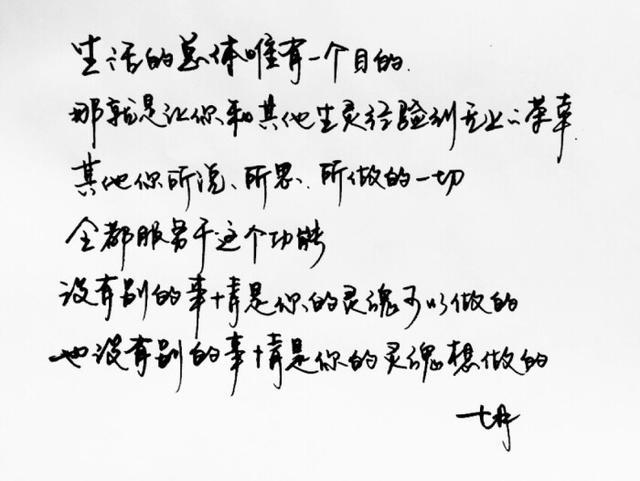 生活的总体唯有一个目的.
那就是让你和其他生灵经验到无上的荣幸.
其他你所说、所思、所做的一切
全都服务于这个功能
没有别的事情是你的灵魂可以做的
也没有别的事情是你的灵魂想做的